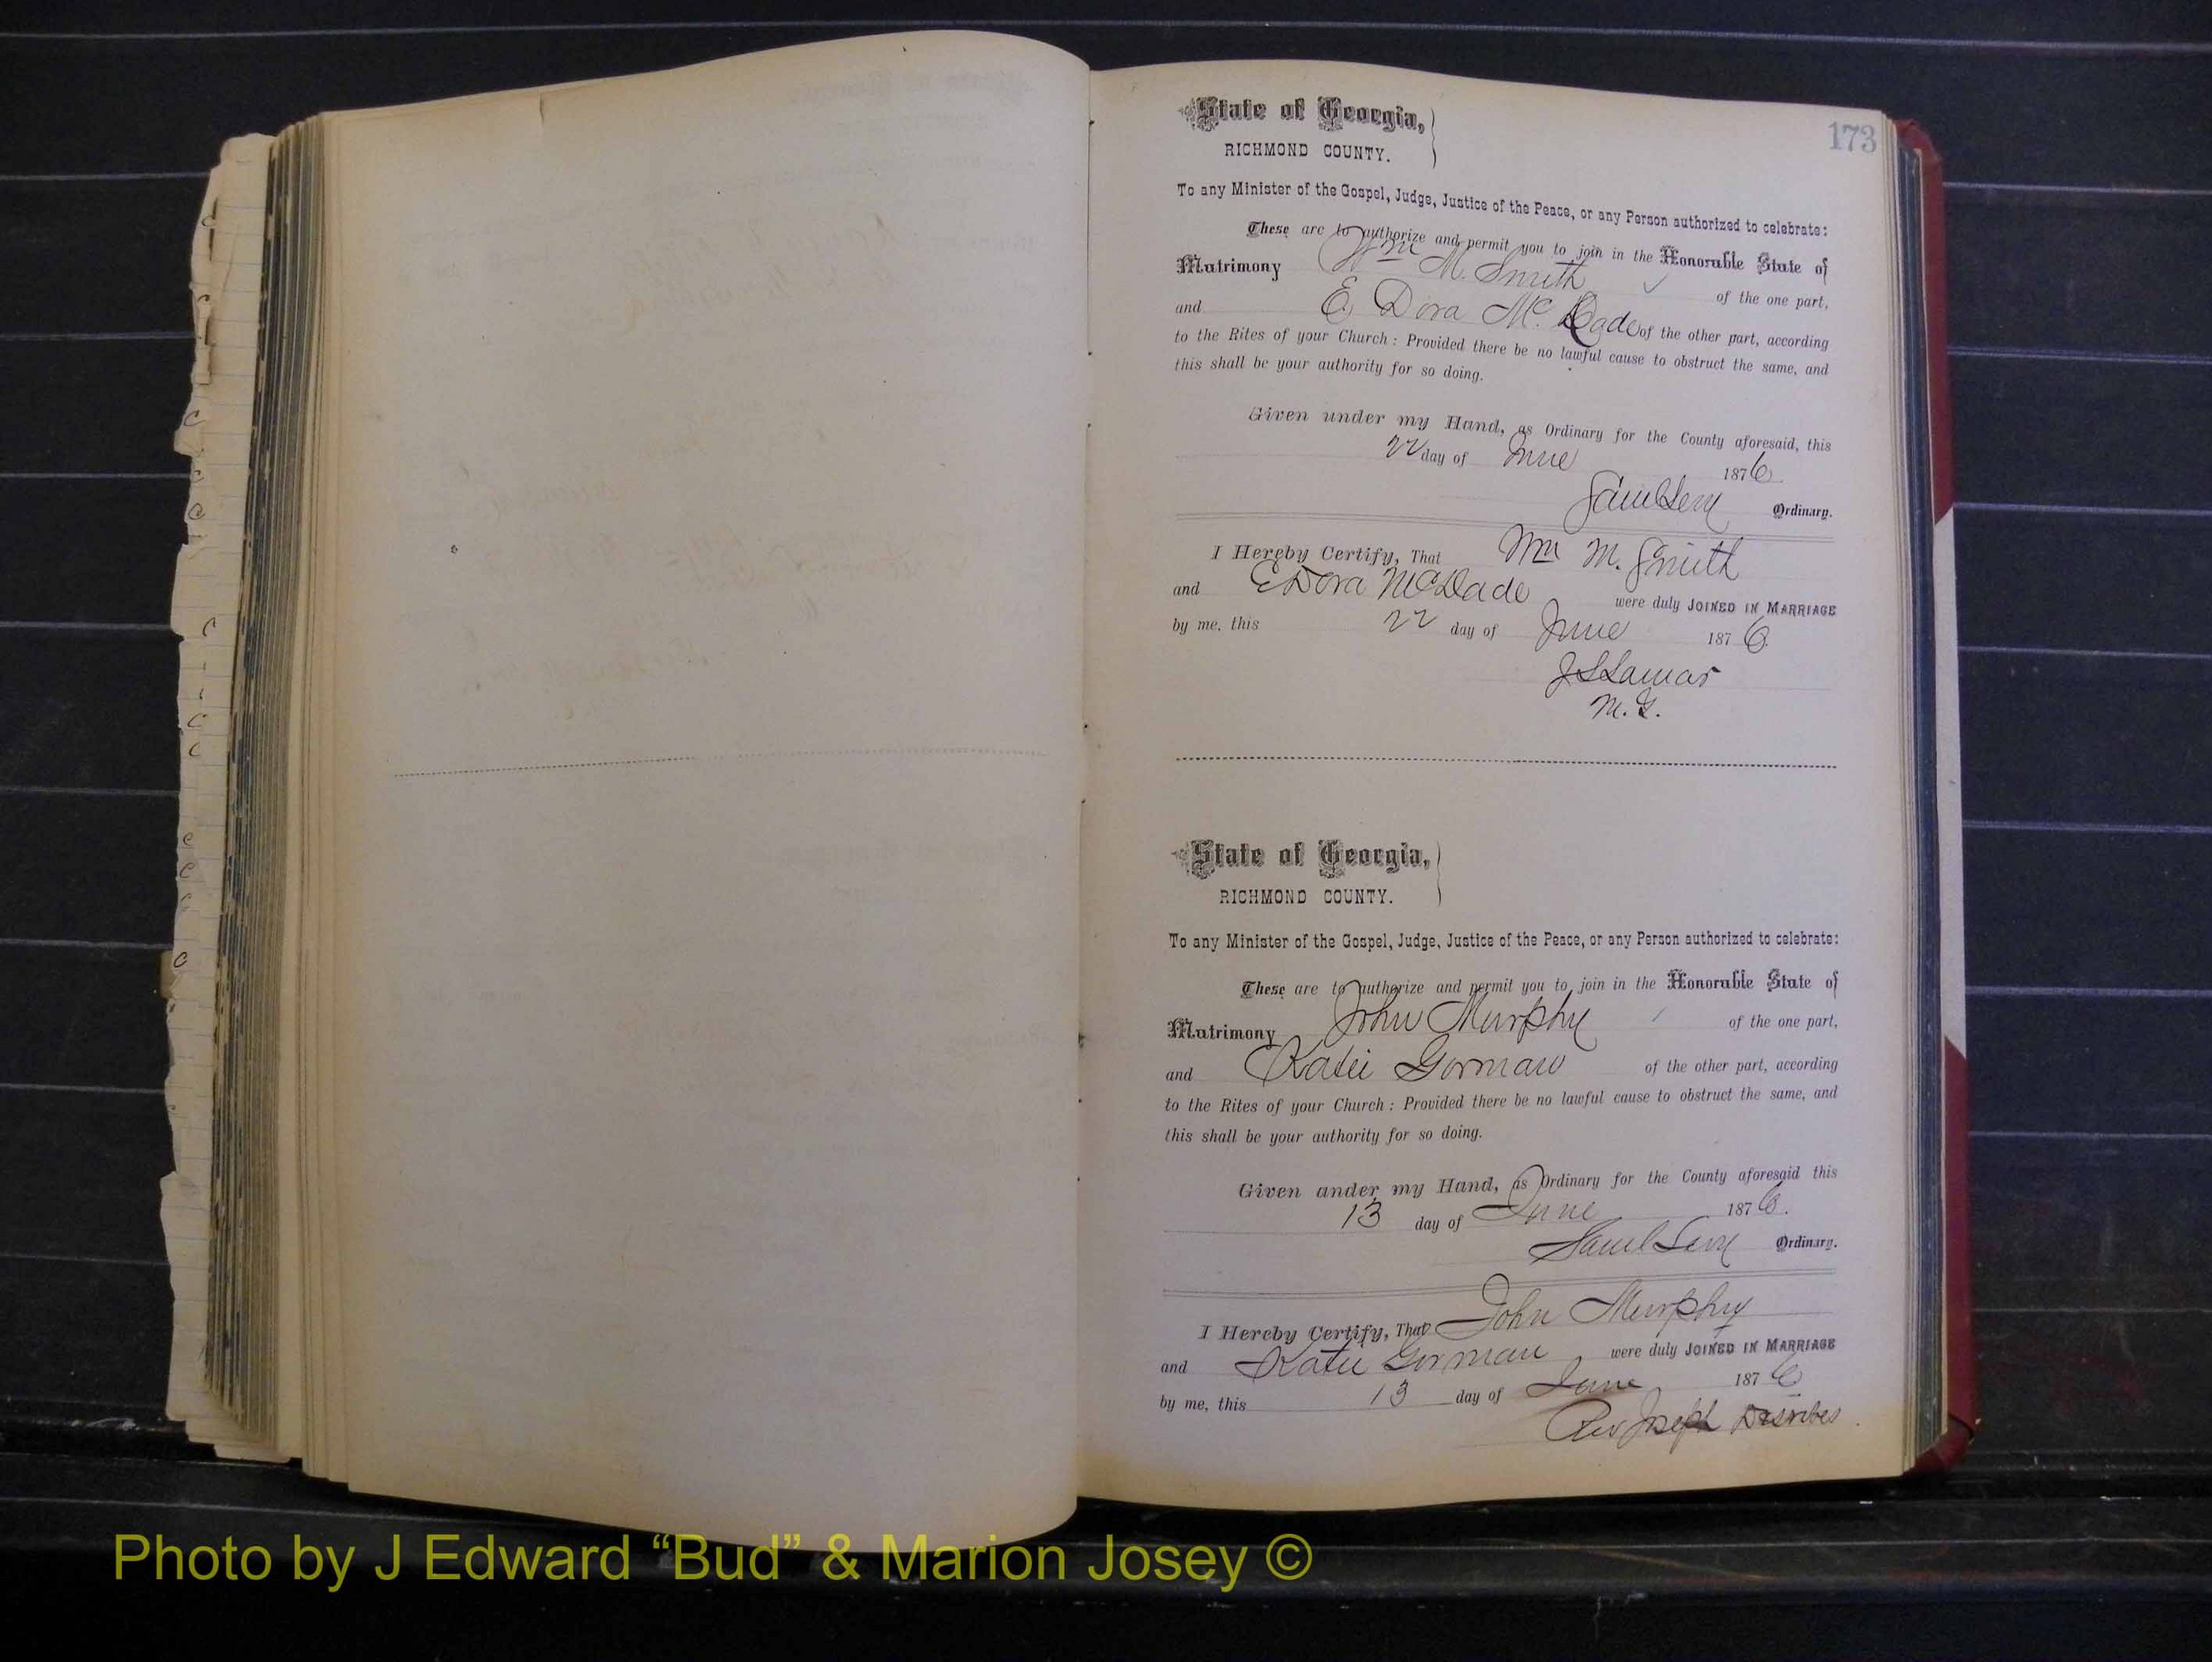 173
State of Georgia,
RICHMOND COUNTY.
To any Minister of the Gospel, Judge, Justice of the Peace, or any Person authorized to celebrate:
These are to authorize and permit you to join in the Honorable State of
Matrimony Wm M. Smith of the one part,
and E. Dora Mc Dade of the other part, according
to the Rites of your Church: Provided there be no lawful cause to obstruct the same, and
this shall be your authority for so doing.
Given under my Hand, as Ordinary for the County aforesaid, this
22 day of June 1876
Saml Levy Ordinary.
I Hereby Certify, That Wm M. Smith
and E Dora McDade were duly JOINED IN MARRIAGE
by me, this 22 day of June 1876.
J S Lamar
M. G.
State of Georgia,
RICHMOND COUNTY.
To any Minister of the Gospel, Judge, Justice of the Peace, or any Person authorized to celebrate:
These are to authorize and permit you to join in the Honorable State of
Matrimony John Murphy of the one part,
and Katie Gorman of the other part, according
to the Rites of your Church: Provided there be no lawful cause to obstruct the same, and
this shall be your authority for so doing.
Given under my Hand, as Ordinary for the County aforesaid this
13 day of June 1876.
Saml Levy Ordinary.
I Hereby Certify, That John Murphy
and Katie Gorman were duly JOINED IN MARRIAGE
by me, this 13 day of June 1876
Rev Joseph
Photo by J Edward “Bud” & Marion Josey ©